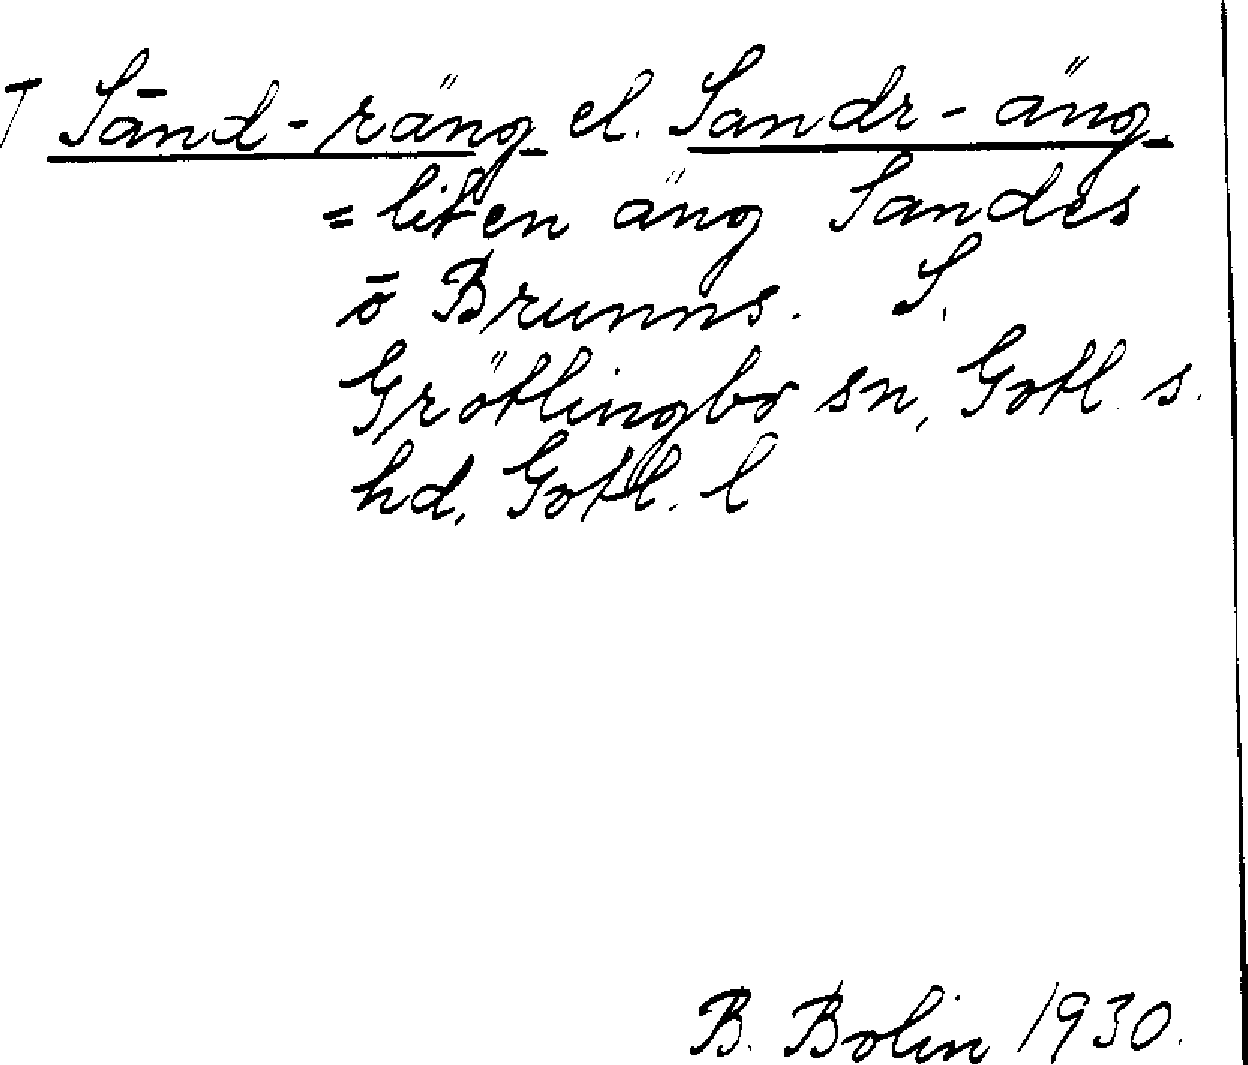 † Sānd-räng el. Sandr-äng
= liten äng Sandes
ō Brunns. S.
Grötlingbo sn, Gotl. s.
hd, Gotl. l
B. Bolin 1930.